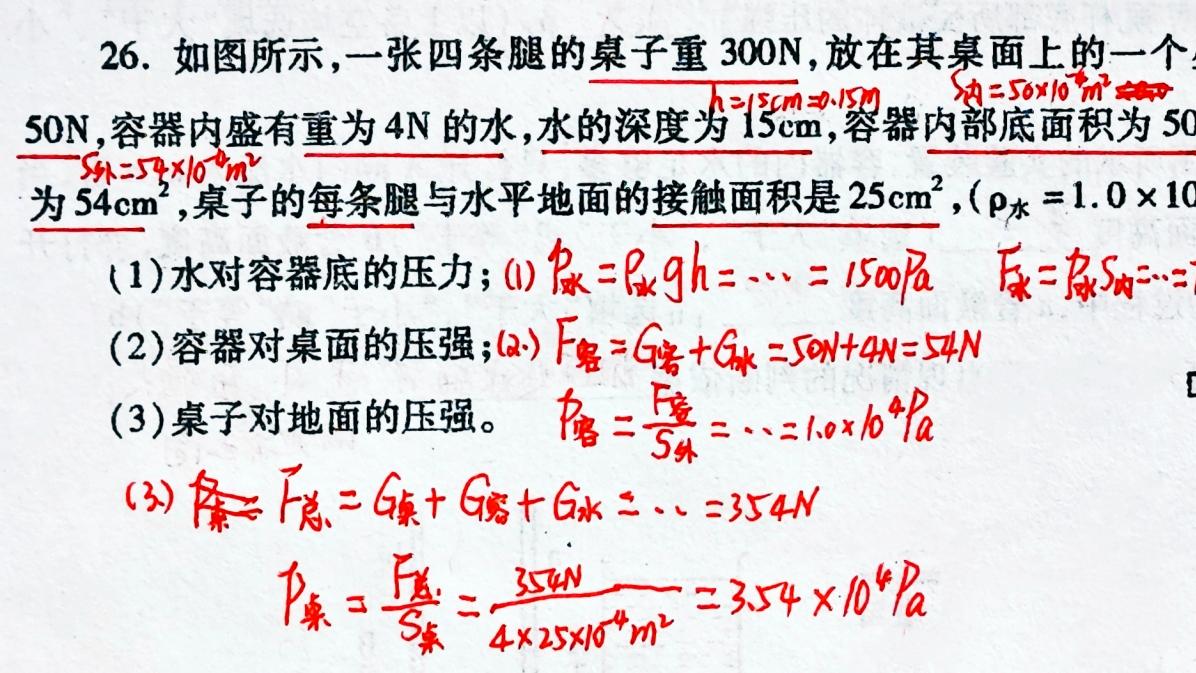 26. 如图所示,一张四条腿的桌子重 300N,放在其桌面上的一个
h=15cm=0.15m S内=50×10⁻⁴m²
50N,容器内盛有重为 4N 的水,水的深度为 15cm,容器内部底面积为 50
S外=54×10⁻⁴m²
为 54cm²,桌子的每条腿与水平地面的接触面积是 25cm²,(ρ水=1.0×10
(1)水对容器底的压力; (1) P水=ρ水gh=…=1500Pa F水=P水S内=…=
(2)容器对桌面的压强; (2.) F容=G容+G水=50N+4N=54N
(3)桌子对地面的压强。 P容=F容/S外=…=1.0×10⁴Pa
(3.) F总=G桌+G容+G水=…=354N
P桌=F总/S桌=354N/4×25×10⁻⁴m²=3.54×10⁴Pa